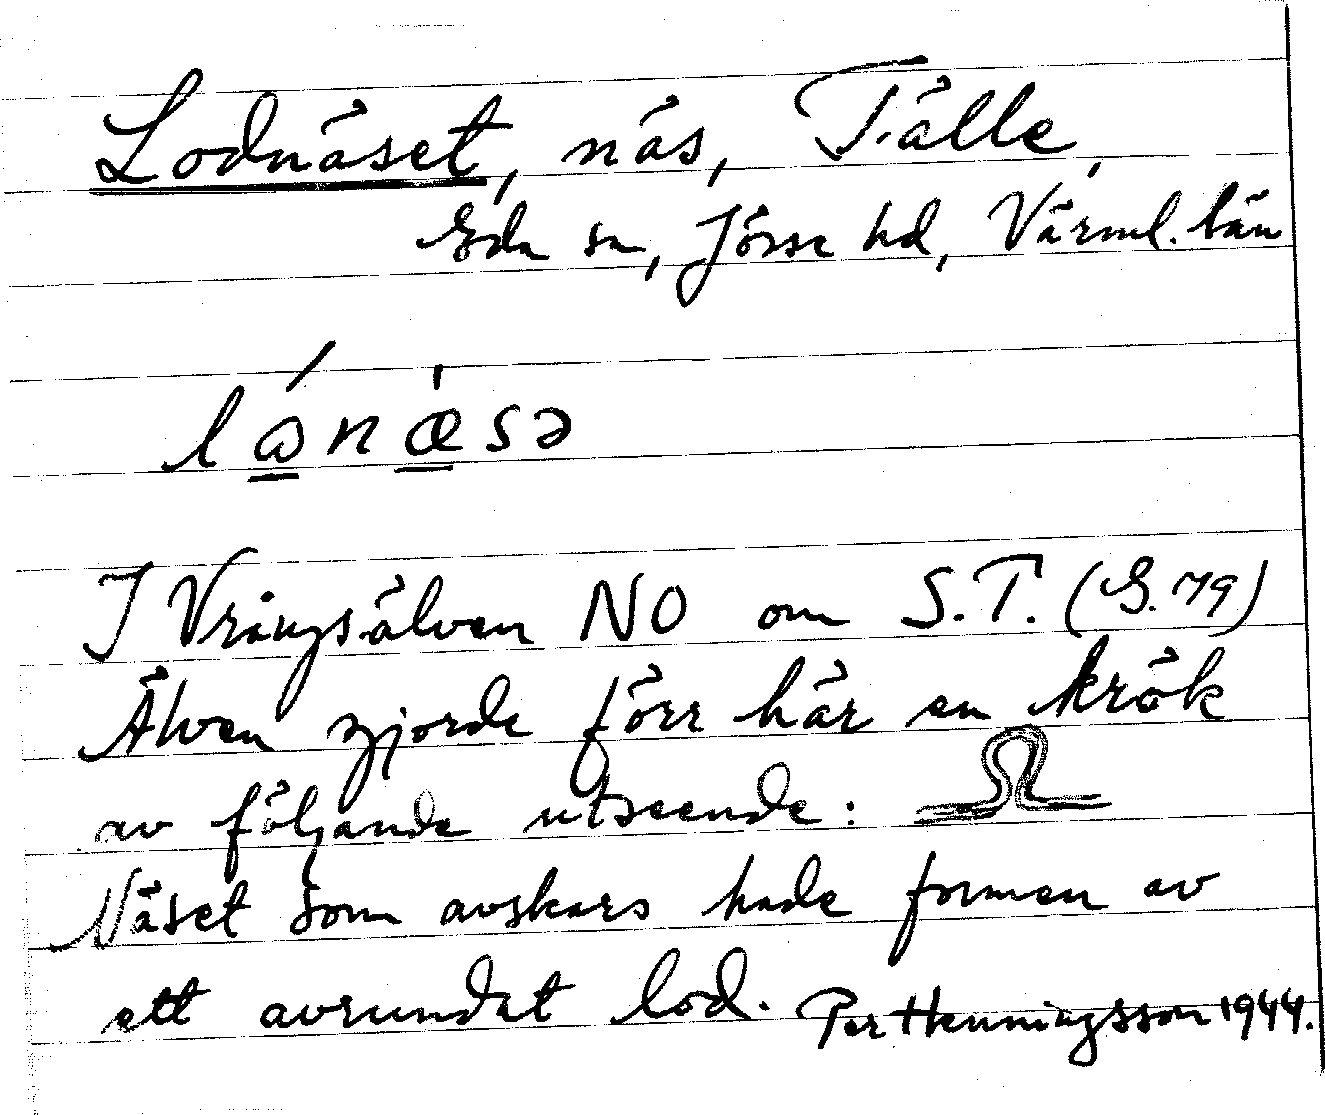 Lodnäset, näs, Tälle,
Eda sn, Jösse hd, Värml. län
lånæsə
I Vrångsälven NO om S.T. (G. 79)
Älven gjorde förr här en krök
av följande utseende:
Näset som avskars hade formen av
ett avrundat lod. Per Henningsson 1944.